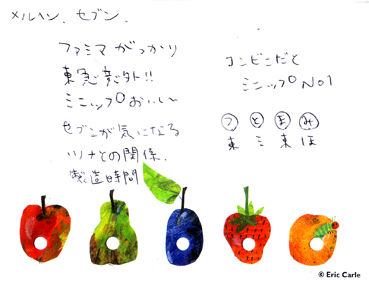 メルヘン、セブン、
ファミマ がっかり
東急 ご意外!!
ミニップ おいしー
セブンが気になる
ツナとの関係、
製造時間
コンビニだと
ミニップ No1
つ と ま み
東 ミ 東 ほ
© Eric Carle